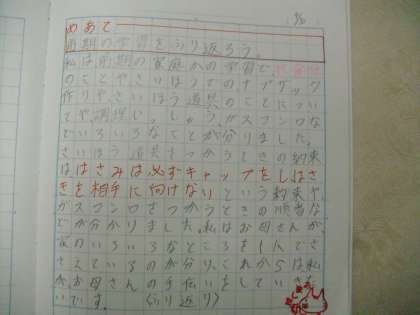 9/30
めあて
前期の学習をふり返ろう。
私は前期の家庭かの学習で
のことやさいほうでのナップザック
作りやさいほう道具のことについ
てや調理じっしゅう、ガスコンロな
どいろいろなことが分りました。
さいほう道具をつかうときの約束
ははさみは必ずキャップをしはさ
きを相手に向けないという約束や、
ガスコンロをつかうときの順番な
どが分かりました。私はお母さんが、
家のいろいろなところをしんでさ
さえているのが分り、これからは私
がお母さんの手伝いをしていきた
いです。(ふり返り)